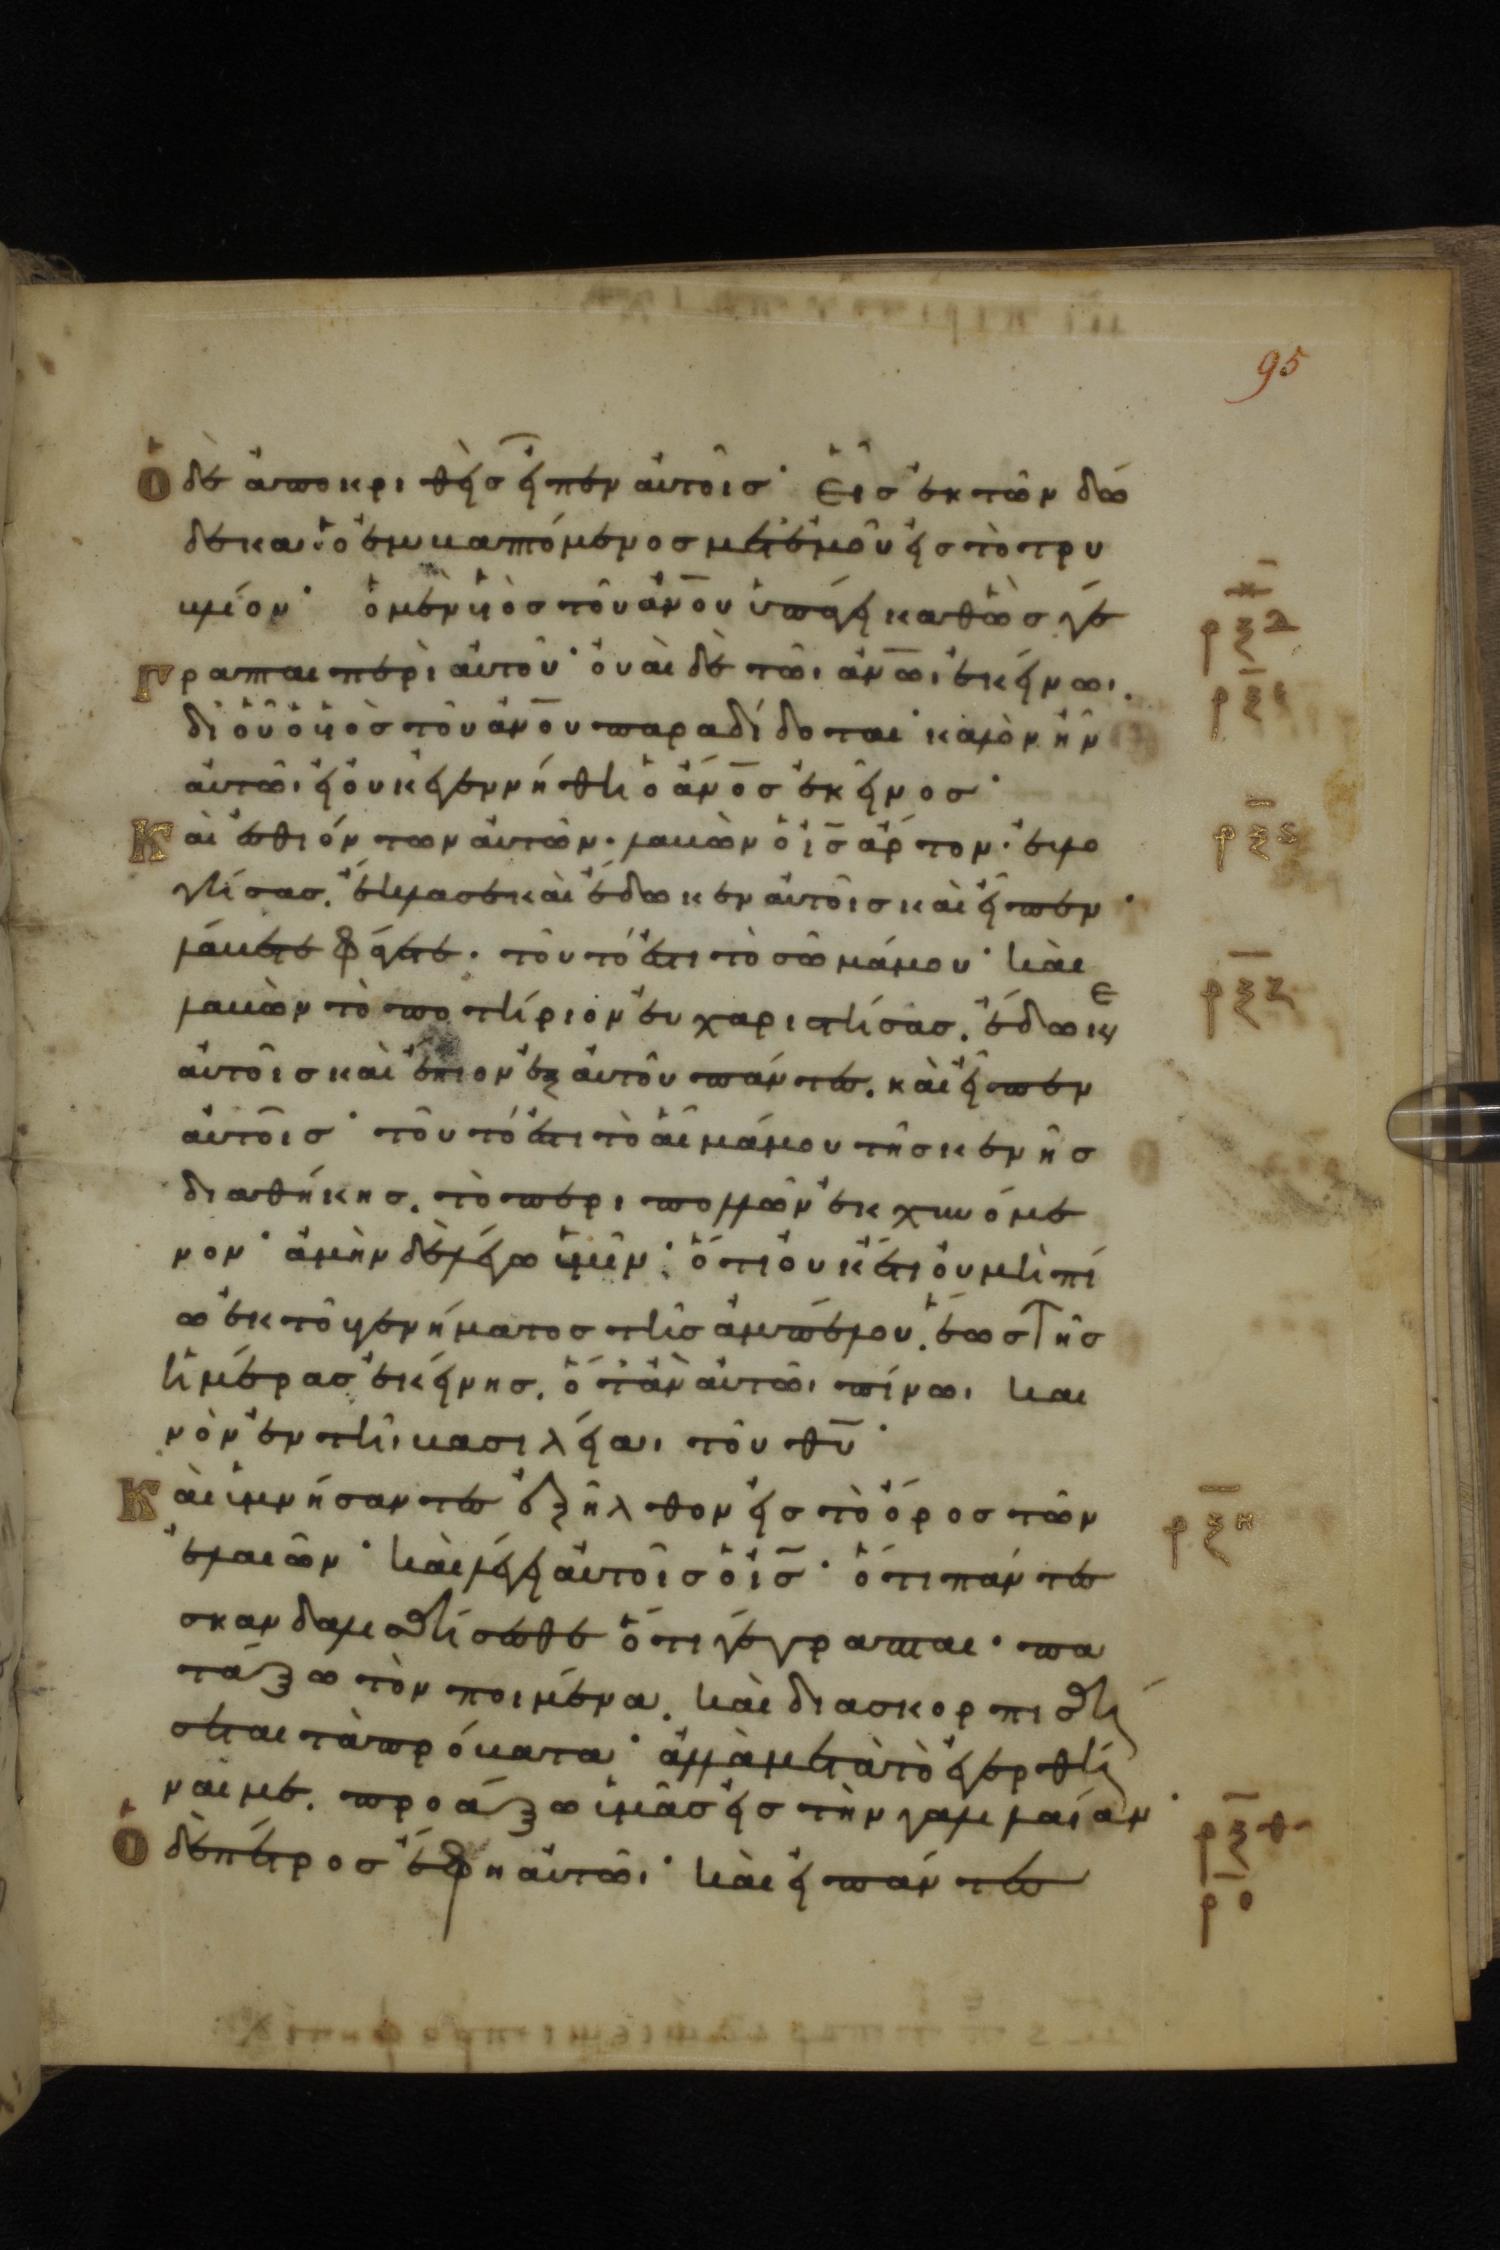 95
Ὁ δὲ ἀποκριθεὶς εἶπεν αὐτοῖς· εἷς ἐκ τῶν δώ
δεκα· ὁ ἐμβαπτόμενος μετ' ἐμοῦ εἰς τὸ τρυ
βλίον· ὁ μὲν υἱὸς τοῦ ἀν̅ου ὑπάγει καθὼς γέ
γραπται περὶ αὐτοῦ· οὐαὶ δὲ τῶι ἀν̅ωι ἐκείνωι.
δι' οὗ ὁ υἱὸς τοῦ ἀν̅ου παραδίδοται· καλὸν ἦν
αὐτῶι εἰ οὐκ ἐγεννήθη ὁ ἀν̅ος ἐκεῖνος·
Καὶ ἐσθιόντων αὐτῶν· λαβὼν ὁ ι̅ς̅ ἄρτον· εὐλο
γήσας. ἔκλασε καὶ ἔδωκεν αὐτοῖς καὶ εἶπεν·
λάβετε φάγετε· τοῦτό ἐστι τὸ σῶμά μου· καὶ
λαβὼν τὸ ποτήριον εὐχαριστήσας. ἔδωκεν
αὐτοῖς καὶ ἔπιον ἐξ αὐτοῦ πάντες. καὶ εἶπεν
αὐτοῖς· τοῦτό ἐστι τὸ αἷμά μου τῆς κενῆς
διαθήκης. τὸ περι πολλῶν ἐκχυνόμε
νον· ἀμὴν δὲ λέγω ὑμῖν· ὅτι οὐκέτι οὐ μὴ πί
ω ἐκ τοῦ γενήματος τῆς ἀμπέλου. ἕως τῆς
ἡμέρας ἐκείνης. ὅταν αὐτῶι πίνωι και
νὸν ἐν τῆι βασιλείαι τοῦ θ̅υ̅·
Καὶ ὑμνήσαντες ἐξῆλθον εἰς τὸ ὄρος τῶν
ἐλαιῶν· καὶ λέγει αὐτοῖς ὁ ι̅ς̅· ὅτι πάντες
σκανδαλισθήσεσθε ὅτι γέγραπται· πα
τάξω τὸν ποιμένα. καὶ διασκορπισθή
σεται τὰ πρόβατα· ἀλλὰ μετὰ τὸ ἐγερθῆ
ναί με. προάξω ὑμᾶς εἰς τὴν γαλιλαίαν·
Ὁ δὲ πέτρος ἔφη αὐτῶι· καὶ εἰ πάντες
ρξδ
ρξε
ρξς
ρξζ
ρξη
ρξθ
ρο